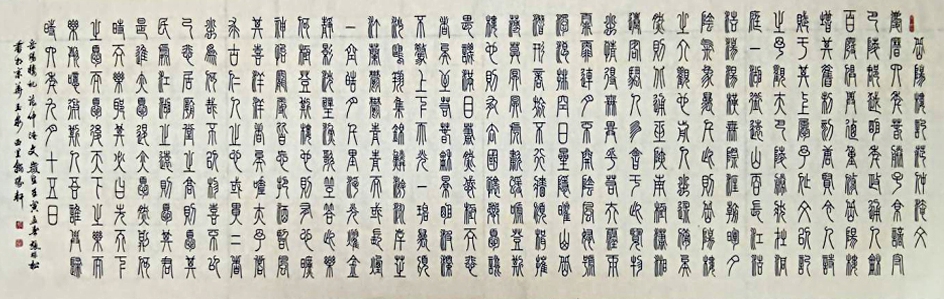 岳陽樓記范仲淹文
慶曆四年春滕子京謫守
巴陵郡越明年政通人和
百廢具興乃重修岳陽樓
增其舊制刻唐賢今人詩
賦于其上屬予作文以記
之予觀夫巴陵勝狀在洞
庭一湖銜遠山吞長江浩
浩湯湯橫無際涯朝暉夕
陰氣象萬千此則岳陽樓
之大觀也前人之述備矣
然則北通巫峽南極瀟湘
遷客騷人多會于此覽物
之情得無異乎若夫霪雨
霏霏連月不開陰風怒號
濁浪排空日星隱曜山岳
潛形商旅不行檣傾楫摧
薄暮冥冥虎嘯猿啼登斯
樓也則有去國懷鄉憂讒
畏譏滿目蕭然感極而悲
者矣至若春和景明波瀾
不驚上下天光一碧萬頃
沙鷗翔集錦鱗游泳岸芷
汀蘭鬱鬱青青而或長煙
一空皓月千里浮光躍金
靜影沉璧漁歌互答此樂
何極登斯樓也則有心曠
神怡寵辱皆忘把酒臨風
其喜洋洋者矣嗟夫予嘗
求古仁人之心或異二者
之為何哉不以物喜不以
己悲居廟堂之高則憂其
民處江湖之遠則憂其君
是進亦憂退亦憂然則何
時而樂耶其必曰先天下
之憂而憂後天下之樂而
樂乎噫微斯人吾誰與歸
時六年九月十五日
岳陽樓記范仲淹文歲在壬寅孟春張林松
書於京華玉泉西